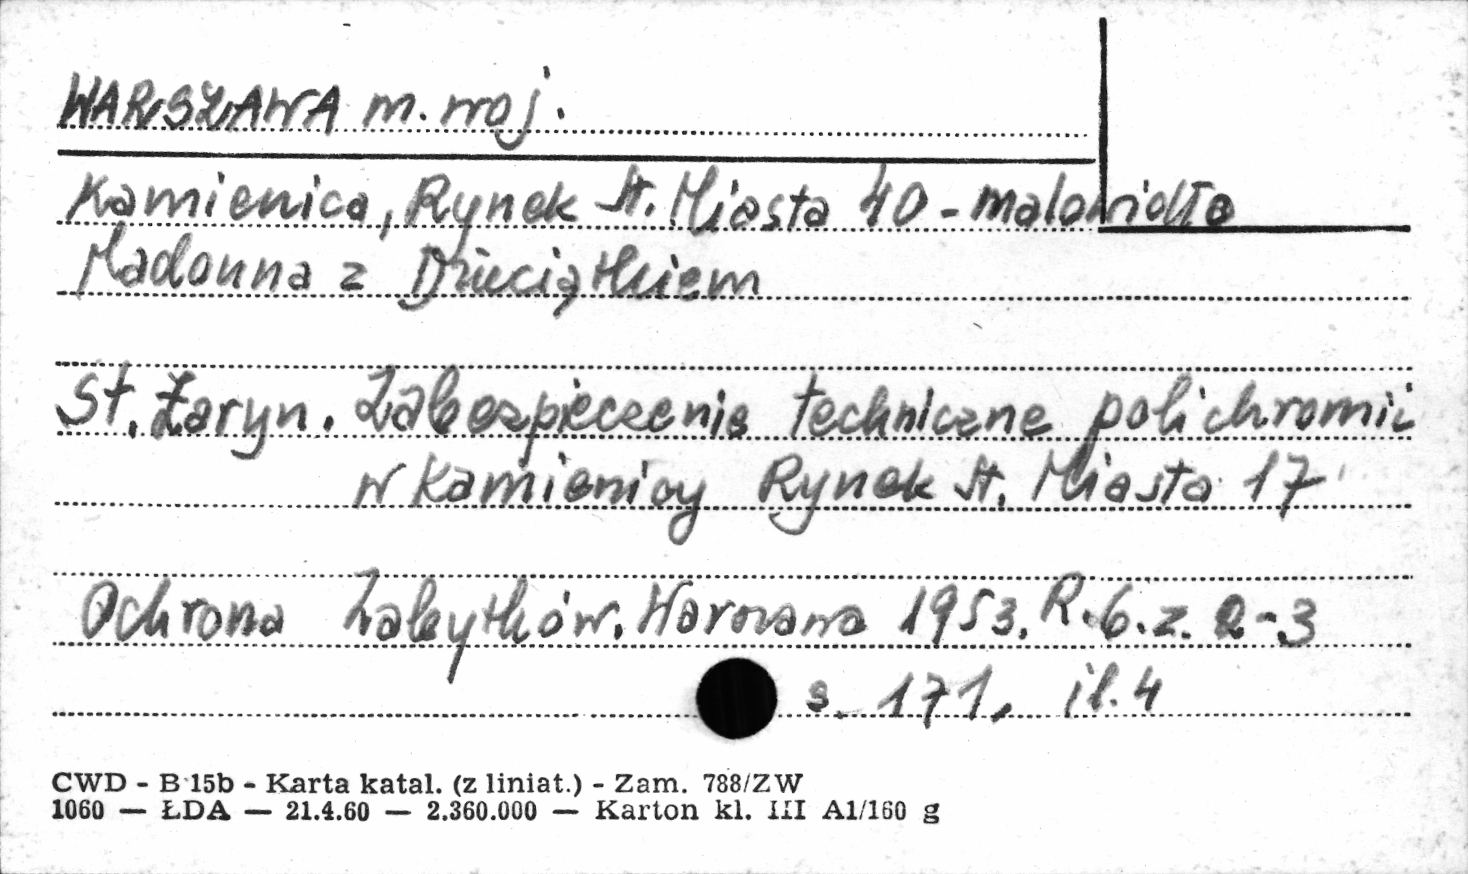 WARSZAWA m. woj.
Kamienica, Rynek St. Miasta 40 - malowidło
Madonna z Dzieciątkiem
St. Żaryn. Zabezpieczenie techniczne polichromii
w kamienicy Rynek St. Miasta 17
Ochrona Zabytków. Warszawa 1953. R. 6. z. 2-3
s. 171, il. 4
CWD - B 15b - Karta katal. (z liniat.) - Zam. 788/ZW
1060 — ŁDA — 21.4.60 — 2.360.000 — Karton kl. III A1/160 g